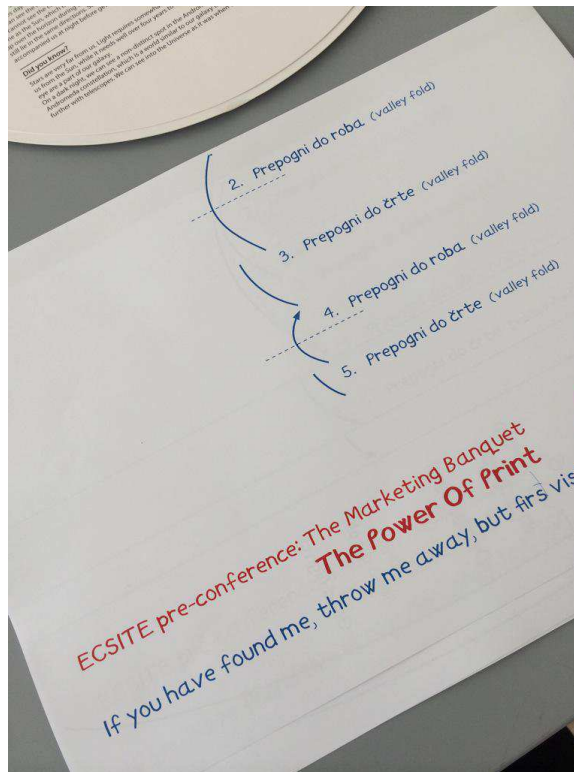 Did you know?
Stars are very far from us. Light requires somewhat
us from the Sun, while it needs well over four years to
eye are a part of our galaxy.
On a dark night, we can see a non-distinct spot in the Andro
Andromeda constellation, which is a world similar to our galaxy
further with telescopes. We can see into the Universe as it was when
2. Prepogni do roba (valley fold)
3. Prepogni do črte (valley fold)
4. Prepogni do roba (valley fold)
5. Prepogni do črte (valley fold)
ECSITE pre-conference: The Marketing Banquet
The Power Of Print
If you have found me, throw me away, but firs vis